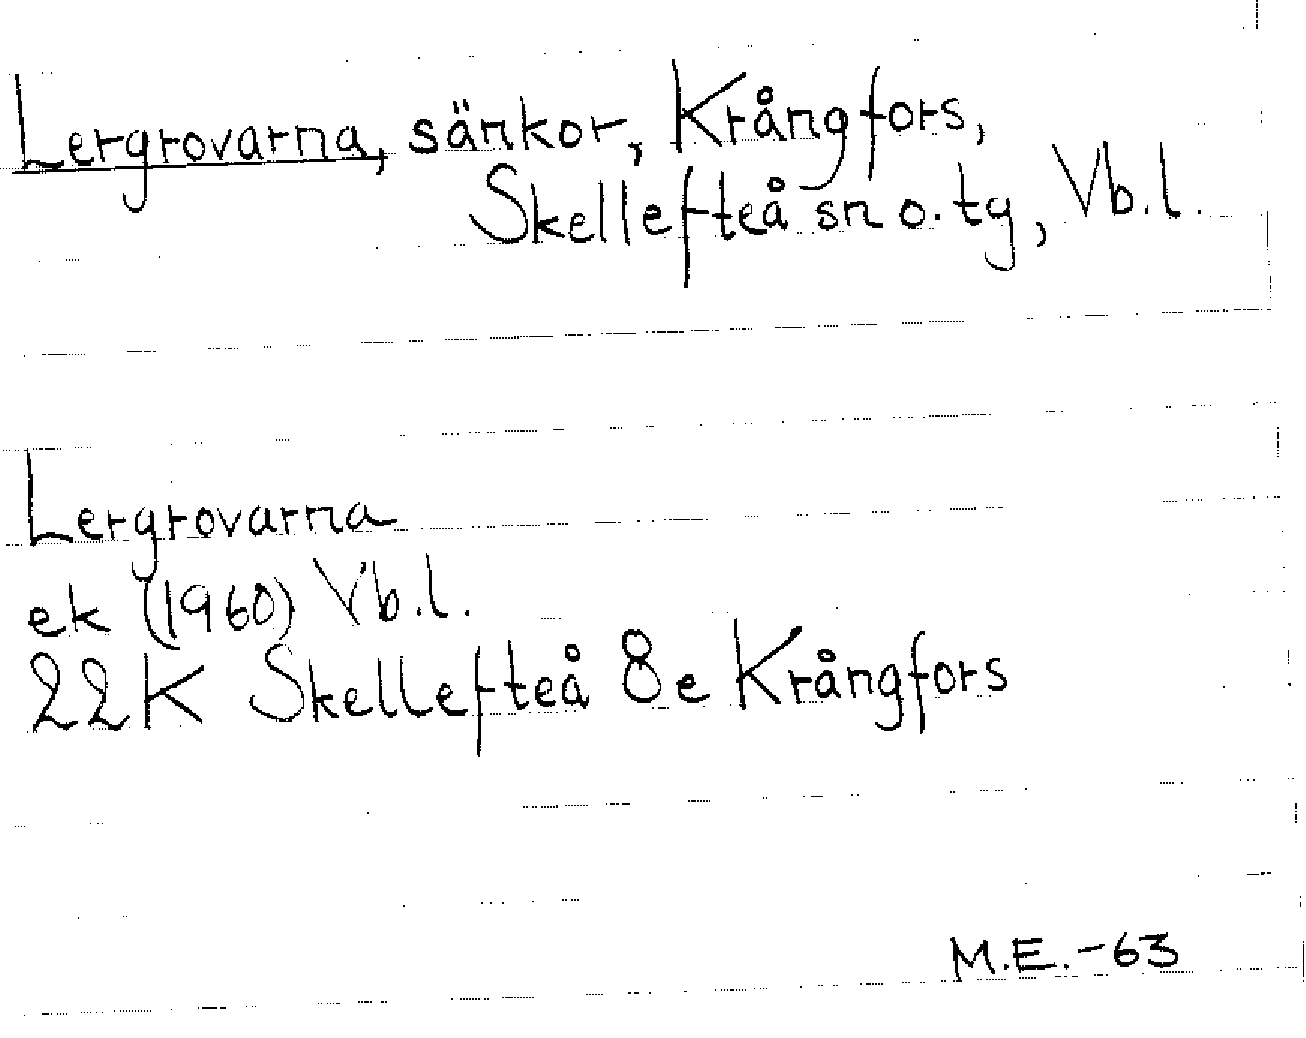 Lergrovarna, sänkor, Krångfors,
Skellefteå sn o. tg, Vb.l.
Lergrovarna
ek (1960) Vb.l.
22K Skellefteå 8e Krångfors
M.E.-63